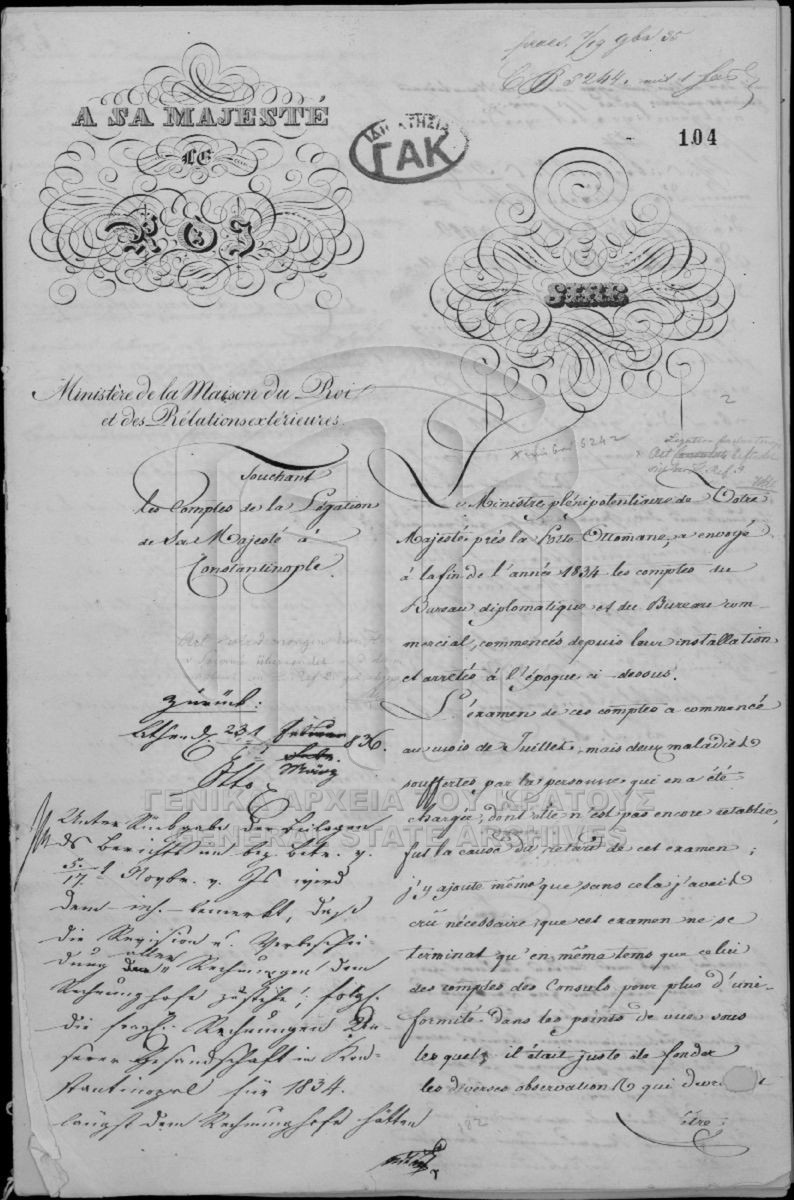 A SA MAJESTÉ
LE
ROI
ΓΑΚ
104
SIRE
Ministère de la Maison du Roi
et des Rélations extérieures.
Touchant
les Comptes de la Légation
de Sa Majesté à
Constantinople.
Le Ministre plénipotentiaire de Votre
Majesté près la Porte Ottomane, a envoyé
à la fin de l'année 1834 les comptes du
Bureau diplomatique et du Bureau com-
mercial, commencés depuis leur installation
et arretés à l'époque ci-dessus.
L'éxamen de ces comptes a commencé
au mois de Juillet, mais deux maladies
souffertes par la personne qui en a été
chargée, dont elle n'est pas encore retablie,
fut la cause du retard de cet examen;
j'y ajoute même que sans cela j'avais
crû nécessaire que cet examen ne se
terminat qu'en même tems que celui
des comptes des Consuls pour plus d'uni-
formité dans les points de vue sous
lesquels il était juste de fonder
les diverses observations qui
être
zurück:
Athen d. 836.
Otto
Unter Rückgabe der Beilagen
ds Berichts im bez. Betr. v.
5/17 Novbr. v. Js wird
dem bemerkt, daß
die Revision u. Verbeschei-
dung aller Rechnungen dem
Rechnungshofe zustehe, folgl.
die fragl. Rechnungen Un-
serer Gesandschaft in Kon-
stantinopel für 1834.
längst dem Rechnungshofe hätten
ΓΕΝΙΚΑ ΑΡΧΕΙΑ ΤΟΥ ΚΡΑΤΟΥΣ
GENERAL STATE ARCHIVES